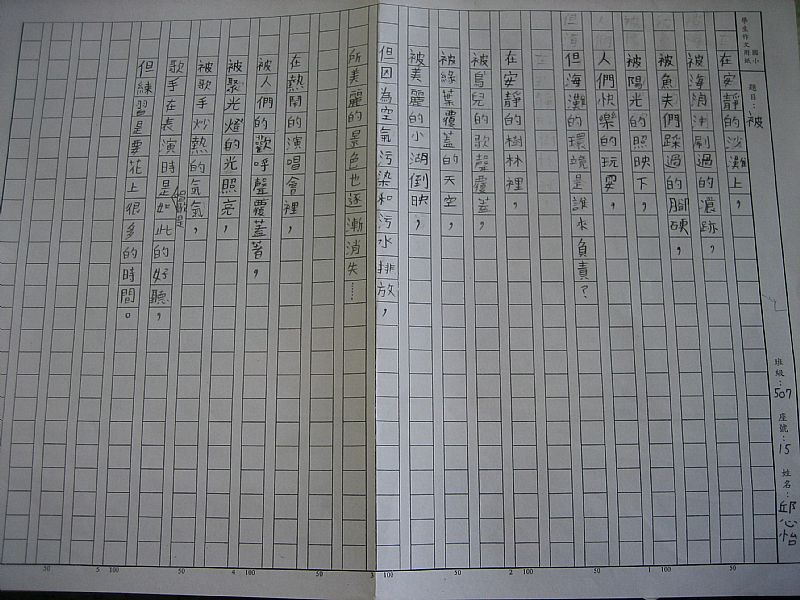 國小
學生作文用紙
題目：被
在安靜的沙灘上，
被海浪沖刷過的濃跡，
被魚夫們踩過的腳硬，
被陽光的照映下，
人們快樂的玩耍，
但海灘的環境是誰來負責？
在安靜的樹林裡，
被鳥兒的歌聲覆蓋，
被綠葉覆蓋的天空，
被美麗的小湖倒映，
但因為空氣污染和污水排放，
所美麗的景色也逐漸消失……
在熱鬧的演唱會裡，
被人們的歡呼聲覆蓋著，
被聚光燈的光照亮，
被歌手炒熱的氣氣，
歌手在表演時是如此的好聽，
但練習是要花上很多的時間。
班級：507 座號：15 姓名：邱心怡
50
100 1
50
100 2
50
100 3
50
100 4
50
100 5
50